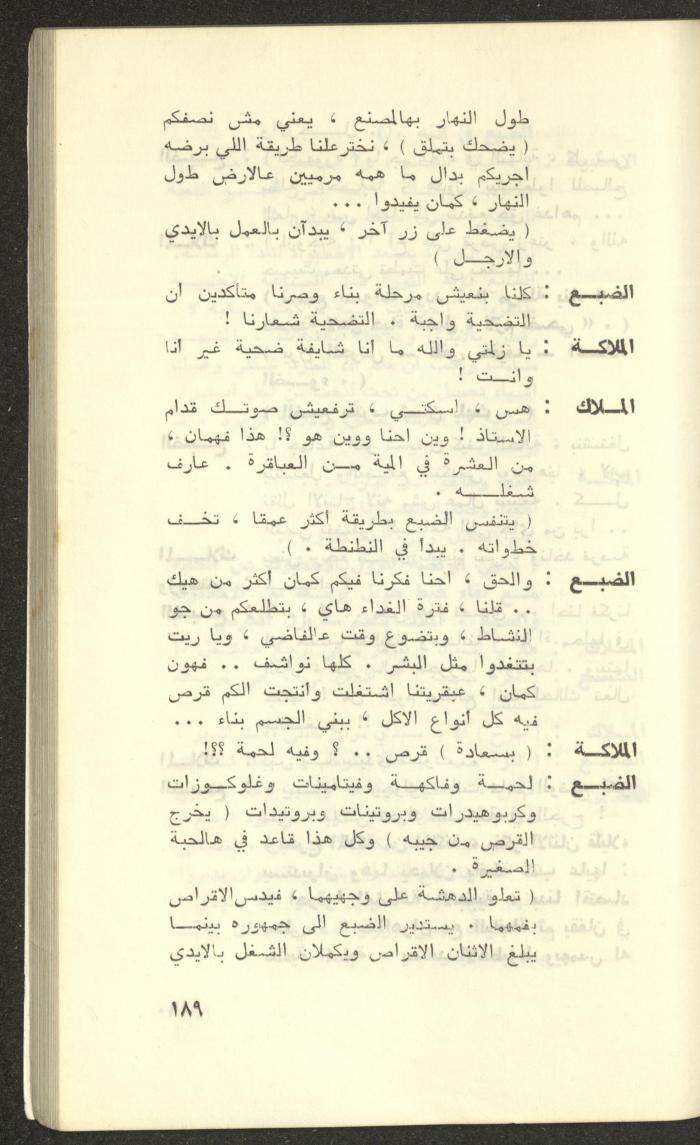 طول النهار بهالمصنع ، يعني مش نصفكم
( يضحك بتملق ) ، نخترعلنا طريقة اللي برضه
اجريكم بدال ما همه مرميين عالارض طول
النهار ، كمان يفيدوا ...
( يضغط على زر آخر ، يبدآن بالعمل بالايدي
والارجل )
الضبع : كلنا بنعيش مرحلة بناء وصرنا متأكدين ان
التضحية واجبة . التضحية شعارنا !
الملاكة : يا زلمتي والله ما أنا شايفة ضحية غير أنا
وانت !
الملاك : هس ، اسكتي ، ترفعيش صوتك قدام
الاستاذ ! وين احنا ووين هو ؟! هذا فهمان ،
من العشرة في المية من العباقرة . عارف
شغله .
( يتنفس الضبع بطريقة أكثر عمقا ، تخف
خطواته . يبدأ في النطنطة . )
الضبع : والحق ، احنا فكرنا فيكم كمان أكثر من هيك
.. قلنا ، فترة الغداء هاي ، بتطلعكم من جو
النشاط ، وبتضوع وقت عالفاضي ، ويا ريت
بتتغدوا مثل البشر . كلها نواشف .. فهون
كمان ، عبقريتنا اشتغلت وانتجت الكم قرص
فيه كل أنواع الاكل ، ببني الجسم بناء ...
الملاكة : ( بسعادة ) قرص .. ؟ وفيه لحمة ؟؟!
الضبع : لحمة وفاكهة وفيتامينات وغلوكوزات
وكربوهيدرات وبروتينات وبروتيدات ( يخرج
القرص من جيبه ) وكل هذا قاعد في هالحبة
الصغيرة .
( تعلو الدهشة على وجهيهما ، فيدس الاقراص
بفمهما . يستدير الضبع الى جمهوره بينما
يبلغ الاثنان الاقراص ويكملان الشغل بالايدي
١٨٩